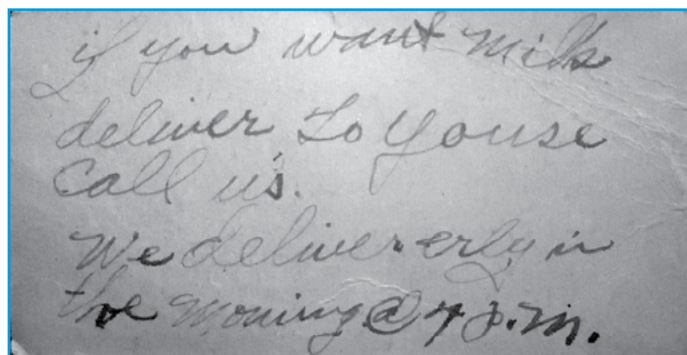 if you want milk
deliver to youse
call us.
We deliver erly in
the moning @ 4 a.m.